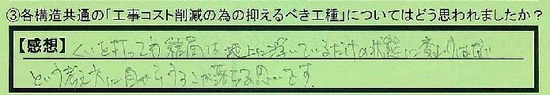 ③各構造共通の「工事コスト削減の為の抑えるべき工種」についてはどう思われましたか？
【感想】くいを打っても結局は地上に浮いているだけの状態に変りはない
という考え方に目からうろこが落ちる思いです。